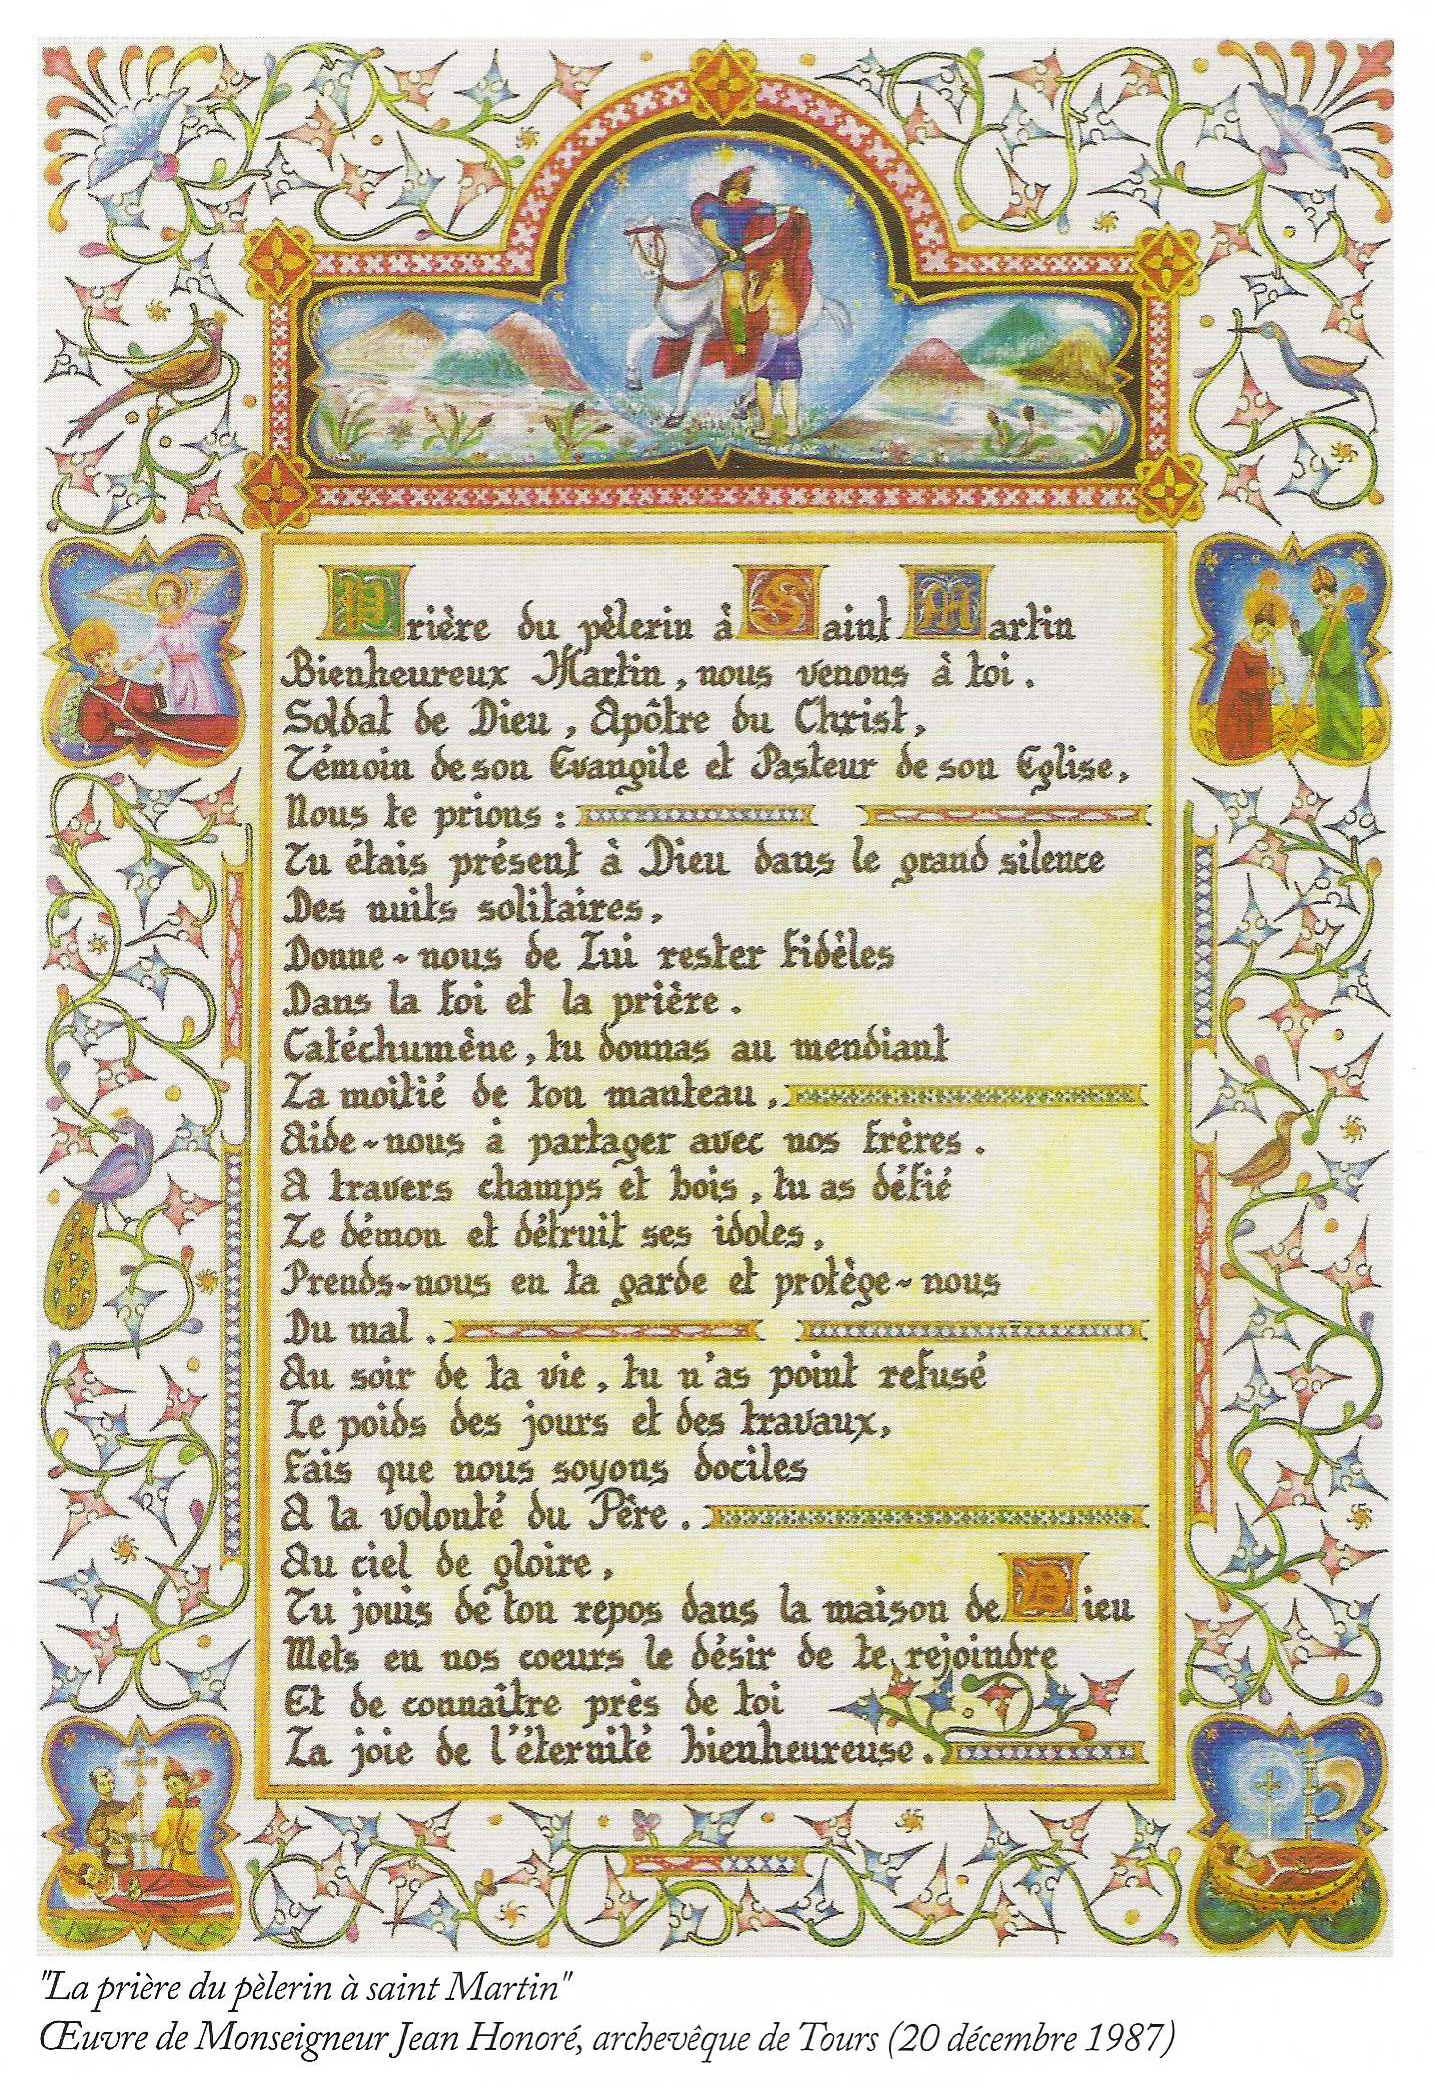 Prière du pèlerin à Saint Martin
Bienheureux Martin, nous venons à toi.
Soldat de Dieu, Apôtre du Christ,
Témoin de son Evangile et Pasteur de son Eglise,
Nous te prions :
Tu étais présent à Dieu dans le grand silence
Des nuits solitaires,
Donne-nous de Lui rester fidèles
Dans la foi et la prière.
Catéchumène, tu donnas au mendiant
La moitié de ton manteau,
Aide-nous à partager avec nos frères.
A travers champs et bois, tu as défié
Le démon et détruit ses idoles,
Prends-nous en ta garde et protège-nous
Du mal.
Au soir de ta vie, tu n'as point refusé
Le poids des jours et des travaux,
Fais que nous soyons dociles
A la volonté du Père.
Au ciel de gloire,
Tu jouis de ton repos dans la maison de Dieu
Mets en nos coeurs le désir de te rejoindre
Et de connaître près de toi
La joie de l'éternité bienheureuse.
"La prière du pèlerin à saint Martin"
Œuvre de Monseigneur Jean Honoré, archevêque de Tours (20 décembre 1987)